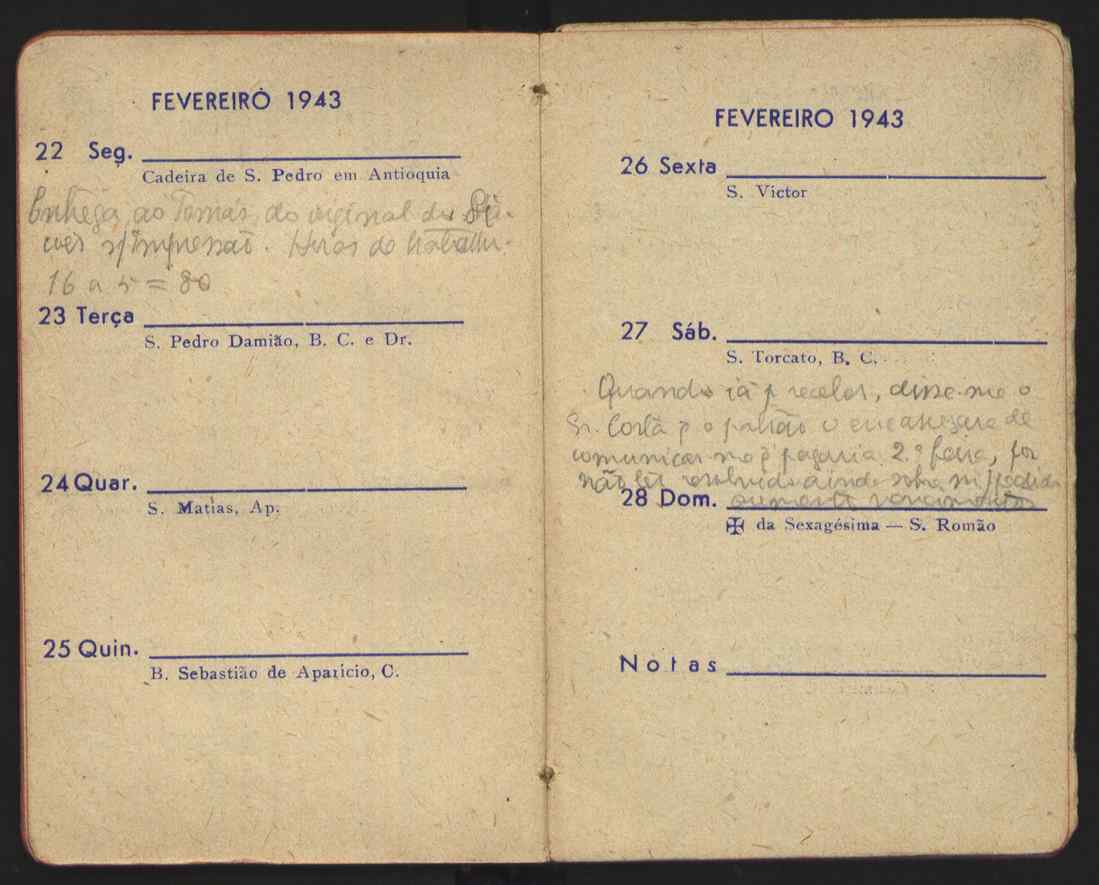 FEVEREIRO 1943
22 Seg.
Cadeira de S. Pedro em Antioquia
Entrega, ao Tomás, do original do
s/impressão. Horas de trabalho:
16 a 5 = 80
23 Terça
S. Pedro Damião, B. C. e Dr.
24 Quar.
S. Matias, Ap.
25 Quin.
B. Sebastião de Aparício, C.
FEVEREIRO 1943
26 Sexta
S. Victor
27 Sáb.
S. Torcato, B. C.
Quando ia p receber, disse-me o
Sr. Costa q o patrão o encarregara de
comunicar-me q pagaria 2.ª feira, por
não ter resolvido ainda sobre m/pedido
28 Dom. aumento vencimentos
✠ da Sexagésima — S. Romão
Notas